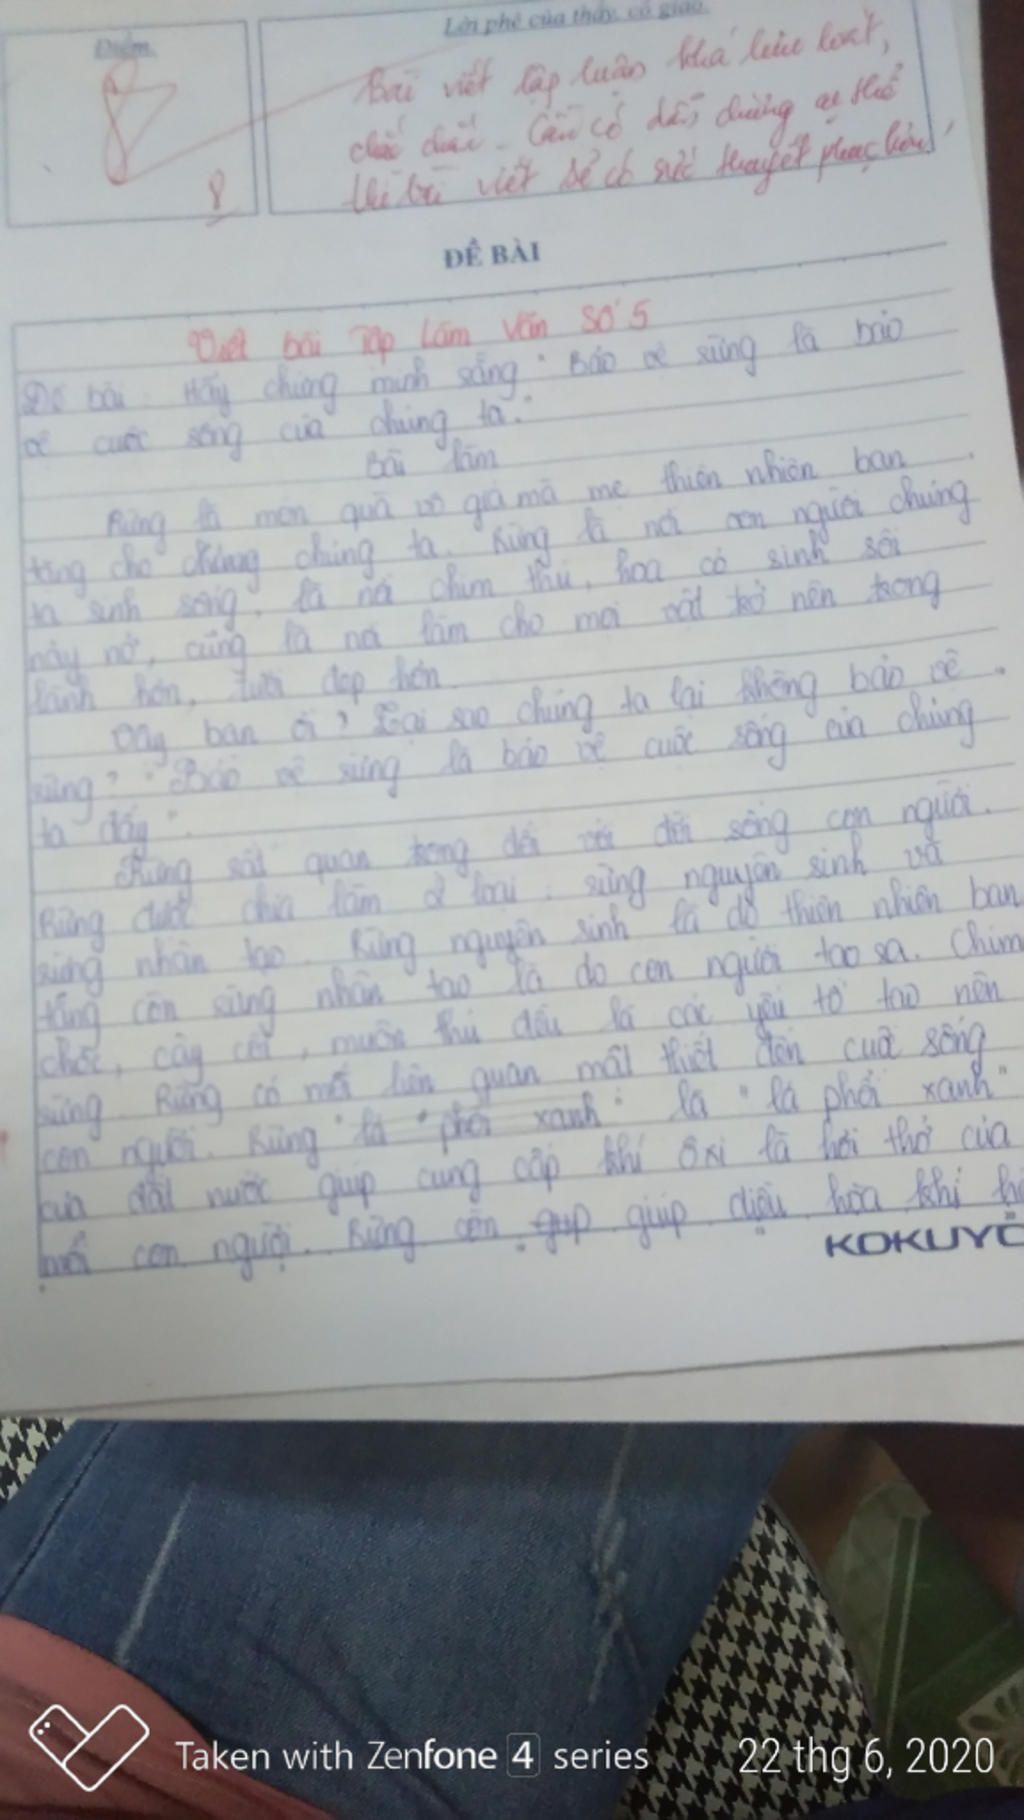 Điểm
Lời phê của thầy, cô giáo
8
Bài viết lập luận khá lưu loát,
chắc chắn. Cần có dẫn chứng cụ thể
thì bài viết sẽ có sức thuyết phục hơn
8
ĐỀ BÀI
Viết bài Tập Làm Văn Số 5
Đề bài: Hãy chứng minh rằng "Bảo vệ rừng là bảo
vệ cuộc sống của chúng ta."
Bài làm
Rừng là món quà vô giá mà mẹ thiên nhiên ban
tặng cho chúng ta. Rừng là nơi con người chúng
ta sinh sống, là nơi chim thú, hoa cỏ sinh sôi
nảy nở, cũng là nơi làm cho mọi vật trở nên trong
lành hơn, tươi đẹp hơn.
Vậy bạn ơi, Tại sao chúng ta lại không bảo vệ
rừng? "Bảo vệ rừng là bảo vệ cuộc sống của chúng
ta đấy".
Rừng rất quan trọng đối với đời sống con người.
Rừng được chia làm 2 loại: rừng nguyên sinh và
rừng nhân tạo. Rừng nguyên sinh là do thiên nhiên ban
tặng còn rừng nhân tạo là do con người tạo ra. Chim
chóc, cây cối, muôn thú đều là các yếu tố tạo nên
rừng. Rừng có mối liên quan mật thiết đến cuộc sống
con người. Rừng "là "phổi xanh" là "lá phổi xanh"
của đất nước giúp cung cấp khí ôxi là hơi thở của
mỗi con người. Rừng còn giúp giúp điều hòa khí
KOKUYO
Taken with Zenfone 4 series
22 thg 6, 2020